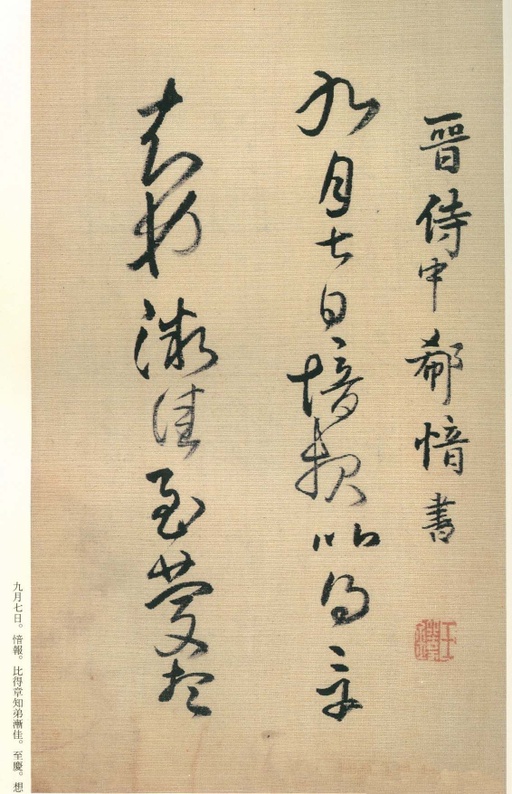 晉侍中郗愔書
九月七日愔報比得章
知弟漸佳至慶想
九月七日。愔報。比得章知弟漸佳。至慶。想